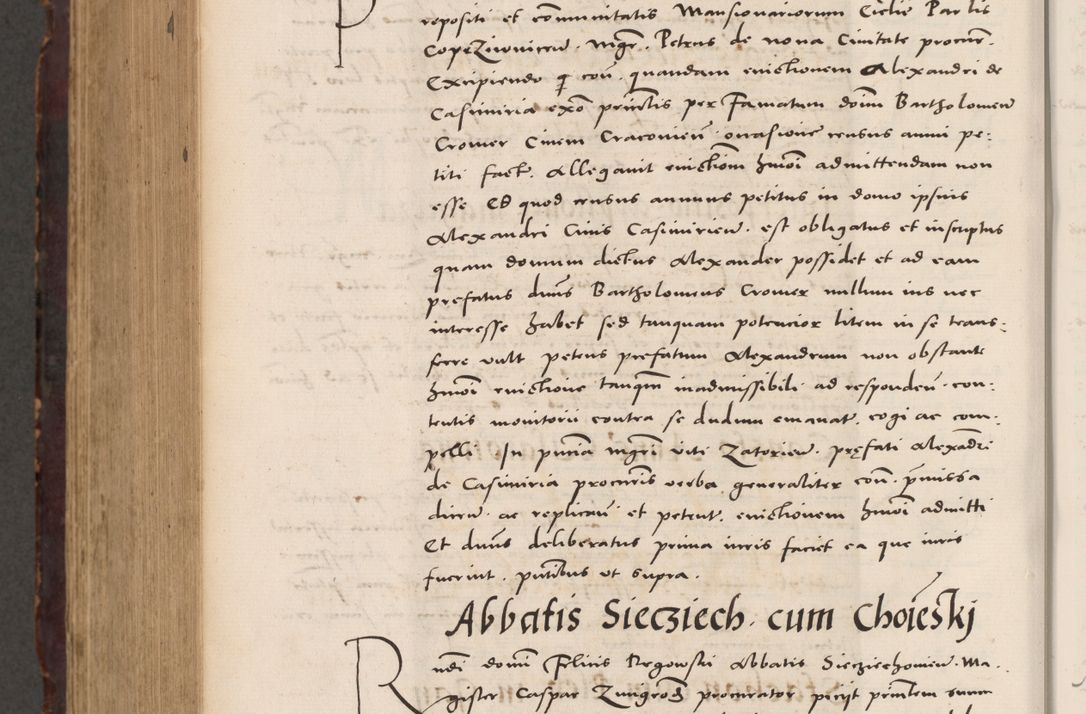 Prepositi et com̄unitatis Mansionariorum Eccl̄ie Par lis
Copeziuovicen̄. Mgr̄. Petrus de nona Ciuitate procur̄.
Excipiendo q̨ con̄. quandam euictionem Alexandri de
Casimiria exō prin̄ctis per Famatum dom̄ Bartholomeū
Cromer Ciuem Cracouien̄. occasione census annui pe:
titi fact̄. Allegauit euictiōm hm̄oi admittendam non
esse Eo quod census annuus petitus in domo ipsius
Alexandri Ciuis Casimirien̄. est obligatus et inscriptus
quam domum dictus Alexander possidet et ad eam
prefatus dn̄us Bartholomeus Cromer nullum ius nec
interesse habet sed tanquam potencior litem in se trans:
ferre vult petens prefatum Alexandrum non obstante
hm̄oi euictione tanqm̄ inadmissibili ad responden̄. con:
tentis monitorii contra se dudum emanat. cogi ac com:
pelli In pn̄cia mgr̄i viti Zatorien̄. pręfati Alexād̄ri
de Casimiria procur̄is verba generaliter con̄. p̄missa
dicen̄. ac replican̄ et petent. euictionem hm̄oi admitti
Et dn̄us deliberatus prima iuris faciet ea que iuris
fuerint. pn̄tibus vt supra.
Abbatis Siecziech. cum Choieński
Rn̄di domī Felicis Regowski Abbatis Sieciechouien̄. Ma.
gister Caspar Zmigrod procurator peciit prin̄tem